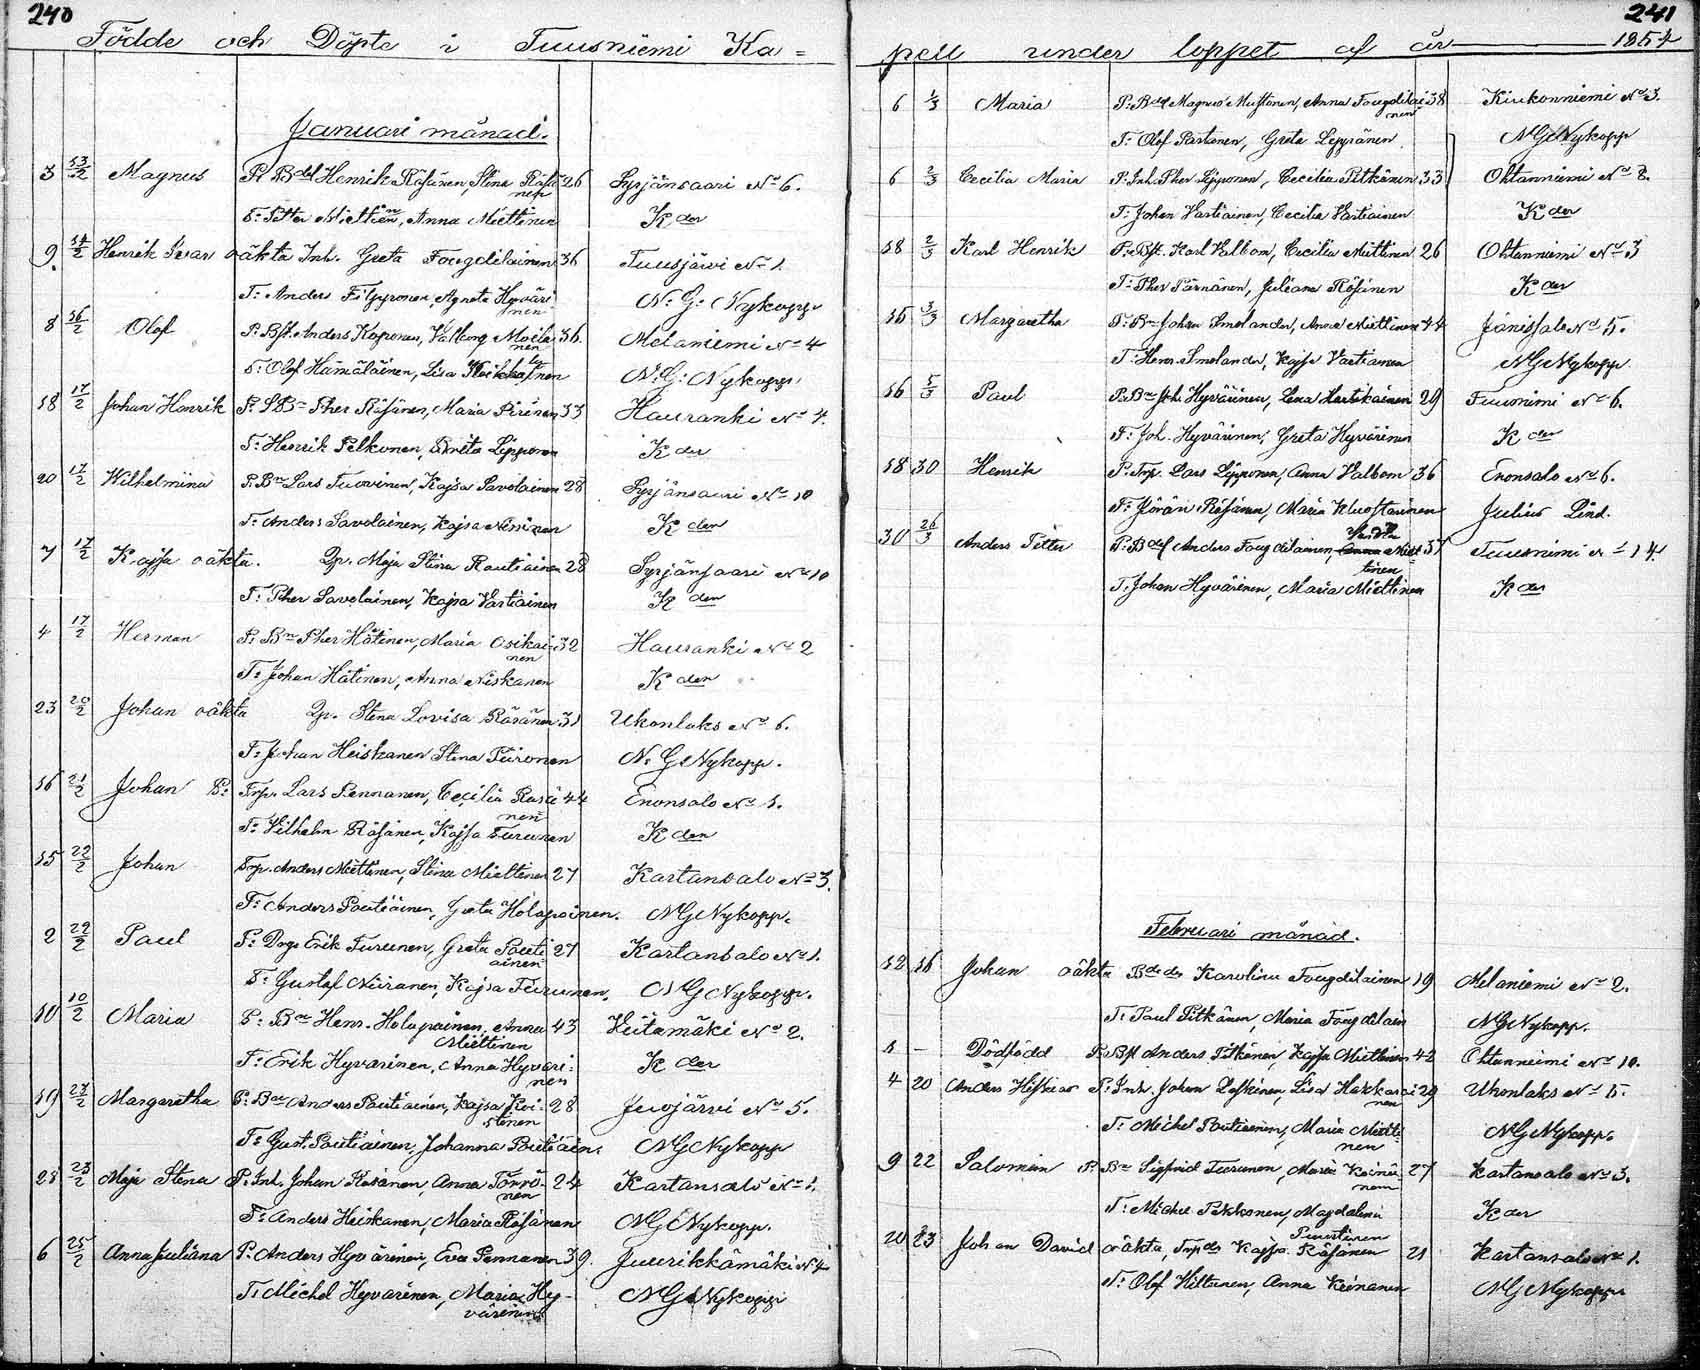 240
Födde och Döpte i Tuusniemi Ka=
Januari månad.
3 13/2 Magnus P: Bdsf Henrik Räsänen, Stina Räsä 26 Syrjänsaari No 6.
nen
T: Petter Miettinen, Anna Miettinen K der
9. 14/2 Henrik Ivar oäkta Inh. Greta Fougdilainen 36 Tuusjärvi No 1.
T: Anders Filppronen, Agneta Hyväri N: G: Nykopp
nen
8 16/2 Olof P: Bst. Anders Koponen, Valborg Moila 36. Melaniemi No 4
nen
T: Olof Hämäläinen, Lisa N: G: Nykopp.
18 17/2 Johan Henrik P: SBn Pher Räsänen, Maria Pirinen 33 Hauranki No 4.
T: Henrik Pelkonen, Greta Lipponen K der
20 17/2 Wilhelmina P: Bn Lars Tuovinen, Kajsa Savolainen 28 Syrjänsaari No 10
T: Anders Savolainen, Kajsa Nissinen K der
7 17/2 Kajsa oäkta. Qp. Maja Stina Rautiainen 28 Syrjänsaari No 10
T: Pher Savolainen, Kajsa Vartiainen K den
4 17/2 Herman P: Bn Pher Hätinen, Maria Asikai- 32 Hauranki No 2
nen
T: Johan Hätinen, Anna Niskanen K den
23 20/2 Johan oäkta Qp. Stina Lovisa Räsänen 31 Ukonlaks No 6.
T: Johan Heiskanen Stina Piironen N: G Nykopp.
16 21/2 Johan P: Trp. Lars Pennanen, Cecilia Rasi 44 Enonsalo No 1.
nen
T: Vilhelm Räsänen, Kajsa Turunen K den
15 22/2 Johan Trp. Anders Miettinen, Stina Miettinen 27 Kartansalo No 3.
T: Anders Poutiainen, Greta Holapainen. N G Nykopp.
2 22/2 Paul P: Drg. Erik Turunen, Greta Pouti 27 Kartansalo No 1.
ainen
T: Gustaf Niiranen, Kajsa Turunen. N G Nykopp.
10 10/2 Maria P: Bn Henr. Holapainen, Anna 43 Viitamäki No 2.
Miettinen
T: Erik Hyvärinen, Anna Hyväri- K der
nen
19 27/2 Margaretha P: Bn Anders Poutiainen, Kajsa Koi- 28 Juojärvi No 5.
stinen
T: Gust. Poutiainen, Johanna Poutiain. N G Nykopp
28 23/2 Maja Stina P: Inh. Johan Räsänen, Anna Törrö- 24 Kartansalo No 1.
nen
T: Anders Heiskanen, Maria Räsänen N G Nykopp.
6 25/2 Anna Juliana P: Anders Hyvärinen, Eva Pennanen 39. Juurikkämäki No 4
T: Michel Hyvärinen, Maria Hy- N G Nykopp
värinen
241
pell under loppet af år 1854
6 1/3 Maria P: Bdsf Magnus Mustonen, Anna Fougdilai 38 Kiukonniemi No 3.
nen
T: Olof Partanen, Greta Leppänen N G Nykopp
6 2/3 Cecilia Maria P: Inh. Pher Lipponen, Cecilia Pitkänen 33 Ohtanniemi No 8.
T: Johan Vartiainen, Cecilia Vartiainen K der
18 2/3 Karl Henrik P: Bst. Karl Valbom, Cecilia Miettinen 26 Ohtanniemi No 3
T: Pher Pärnänen, Juliana Räsänen K der
15 3/3 Margaretha P: Bn Johan Smolander, Anna Miettinen 44 Jänissalo No 5.
T: Henr. Smolander, Kajsa Vartiainen N G Nykopp
16 5/3 Paul P: Bn Joh: Hyvärinen, Lena Hartikainen 29 Tuusnimi No 6.
T: Joh. Hyvärinen, Greta Hyvärinen K der
18 30 Henrik P: Trp. Lars Lipponen, Anna Valbom 36 Enonsalo No 6.
T: Jöran Räsänen, Maria Kluostarinen Julius Lind.
30 26/3 Anders Petter P: Bdsf Anders Fougdilainen, Anna Miet- 37 Tuusnimi No 14.
tinen
T: Johan Hyvärinen, Maria Miettinen K der
Februari månad.
12 16 Johan oäkta Bdedr Karolina Fougdilainen 19 Melaniemi No 2.
T: Paul Pitkänen, Maria Fougdilain N G Nykopp.
1 – Dödfödd P: Bst Anders Pitkänen, Kajsa Miettinen 42 Ohtanniemi No 10.
4 20 Anders Hiskias P: Inh. Johan Leskinen, Lisa Hakkarai 29 Ukonlaks No 5.
nen
T: Michel Poutiainen, Maria Mietti- N G Nykopp.
nen
9 22 Salomon P. Bn Sigfrid Turunen, Maria Keinä- 27 Kartansalo No 3.
nen
T: Michel Pekkonen, Magdalena K der
Puustinen
20 23 Johan David oäkta, Trpdr Kajsa Räsänen 21 Kartansalo No 1.
T: Olof Hiltunen, Anna Keinänen N G Nykopp